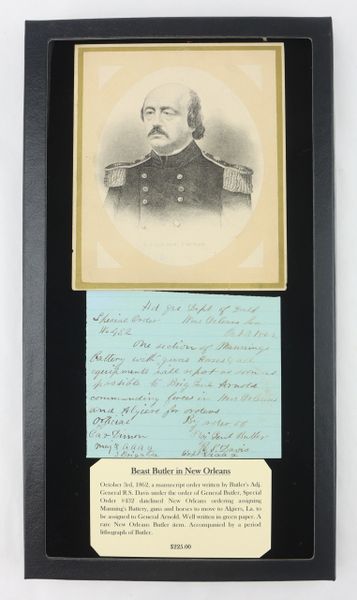 Hd qrs Dept of Gulf
Special Order New Orleans
No 432
One section of Mannings
Battery with guns horses &
equipments will report as soon as
possible to Brig Genl Arnold
commanding forces in New Orleans
and Algiers for orders
Official By order of
Genl Butler
R. S. Davis
Beast Butler in New Orleans
October 3rd, 1862, a manuscript order written by Butler's Adj.
General R.S. Davis under the order of General Butler, Special
Order #432 datelined New Orleans ordering assigning
Manning's Battery, guns and horses to move to Algiers, La. to
be assigned to General Arnold. Well written in green paper. A
rare New Orleans Butler item. Accompanied by a period
lithograph of Butler.
$225.00